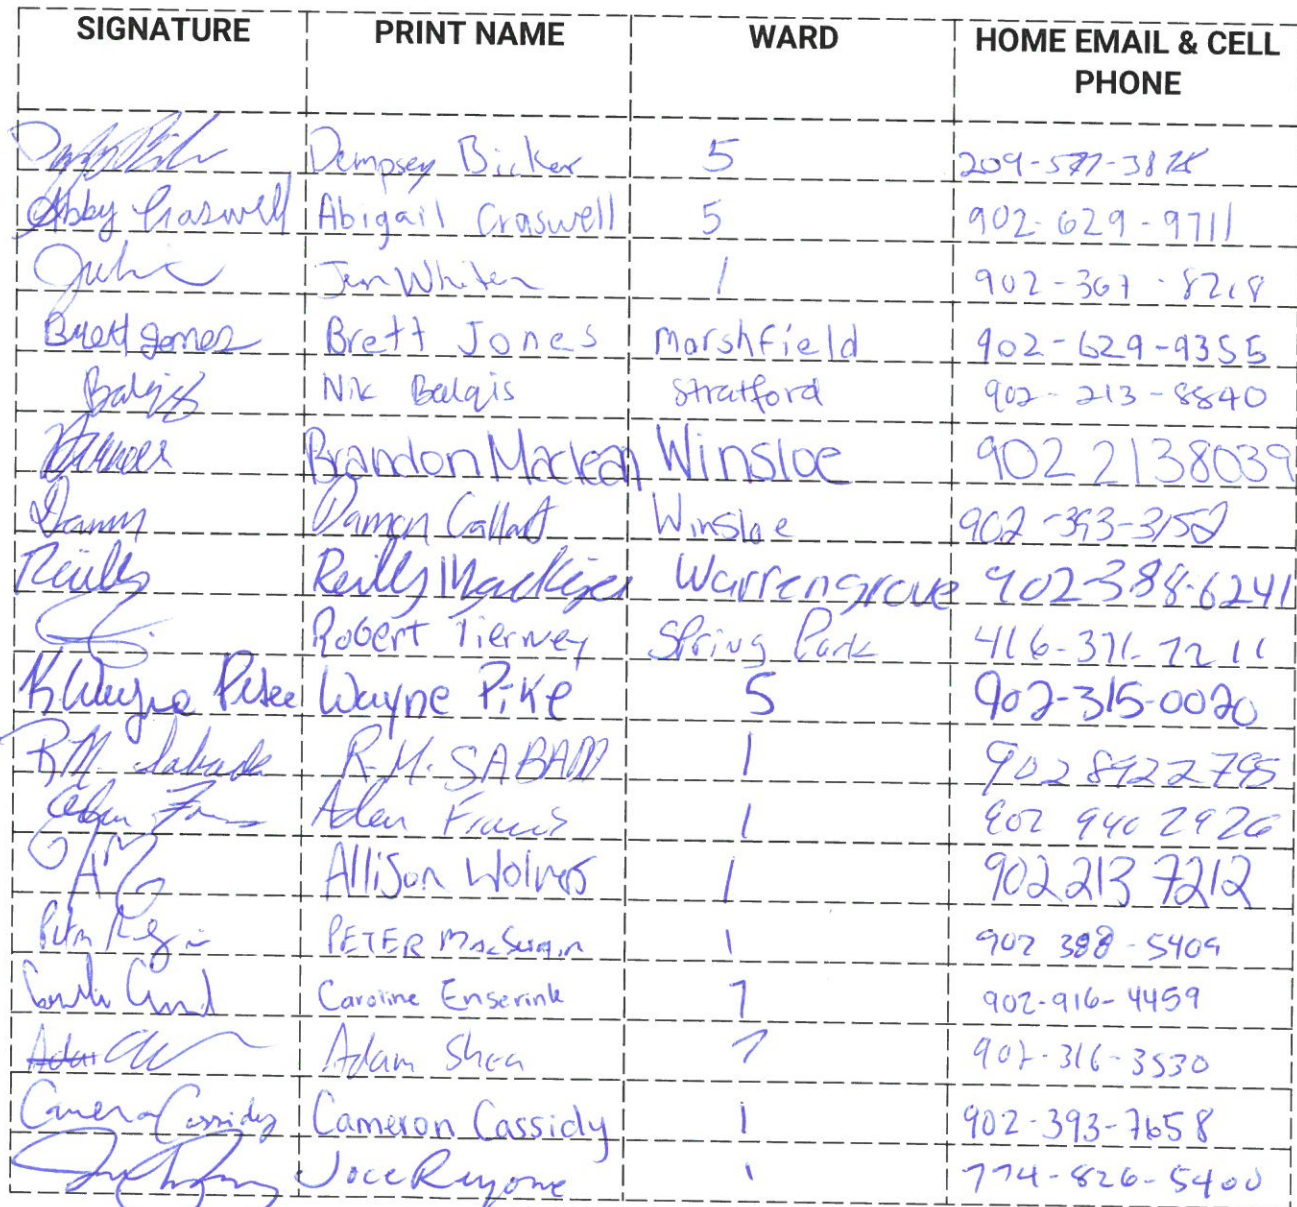 SIGNATURE PRINT NAME WARD HOME EMAIL & CELL
PHONE
Dempsey Bicker 5 209-577-3878
Abby Craswell Abigail Craswell 5 902-629-9711
Jen Whiten 1 902-367-8218
Brett Jones Brett Jones Marshfield 902-629-9355
Balqis Nik Balqis Stratford 902-213-8840
Brandon Maclean Winsloe 902 2138039
Damon Damon Callant Winsloe 902-393-3152
Reilly Reilly Warrengrove 902-388-6241
Robert Tierney Spring Park 416-371-7211
R Wayne Pike Wayne Pike 5 902-315-0020
R.M. Sabada R.M. SABADA 1 902 892 2795
Francis 1 902 940 2926
Allison 1 902 213 7212
PETER 1 902 388-5409
Caroline Enserink 7 902-916-4459
Adam Shea 7 902-316-3530
Cameron Cassidy Cameron Cassidy 1 902-393-7658
1 774-826-5400